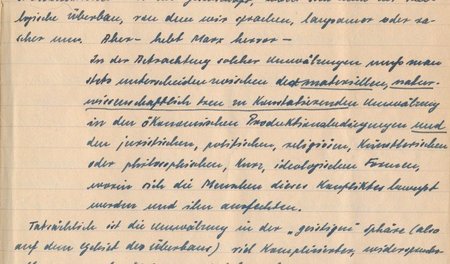 logische Überbau, von dem wir sprachen, langsamer oder ra-
scher um. Aber – hebt Marx hervor –
In der Betrachtung solcher Umwälzungen muss man
stets unterscheiden zwischen der materiellen, natur-
wissenschaftlich treu zu konstatierenden Umwälzung
in den ökonomischen Produktionsbedingungen und
den juristischen, politischen, religiösen, künstlerischen
oder philosophischen, kurz, ideologischen Formen,
worin sich die Menschen dieses Konfliktes bewusst
werden und ihn ausfechten.
Tatsächlich ist die Umwälzung in der „geistigen" Sphäre (also
auf dem Gebiet des Überbaus) viel komplizierter,